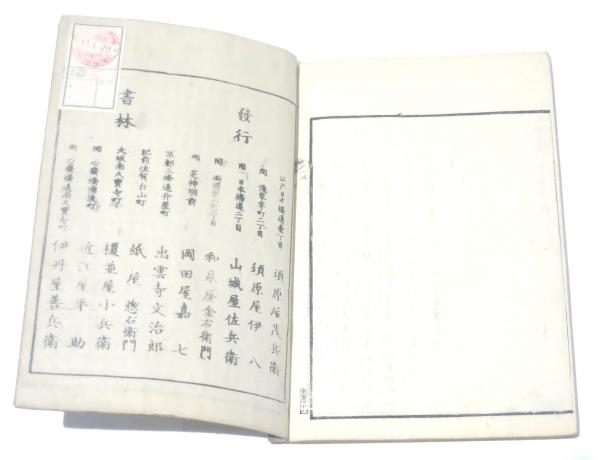 發行
書林
江戸日本橋通壱丁目 須原屋茂兵衛
同 浅草茅町二丁目 須原屋伊八
同 日本橋通二丁目 山城屋佐兵衛
同 両国 二丁目 和泉屋金右衛門
同 芝神明前 岡田屋嘉七
京都三條通升屋町 出雲寺文治郎
肥前佐賀白山町 紙屋惣右衛門
大坂南久寳寺町 榎並屋小兵衛
同 心齋橋備後町 近江屋平助
同 心齋橋通南久寳寺町 伊丹屋善兵衛